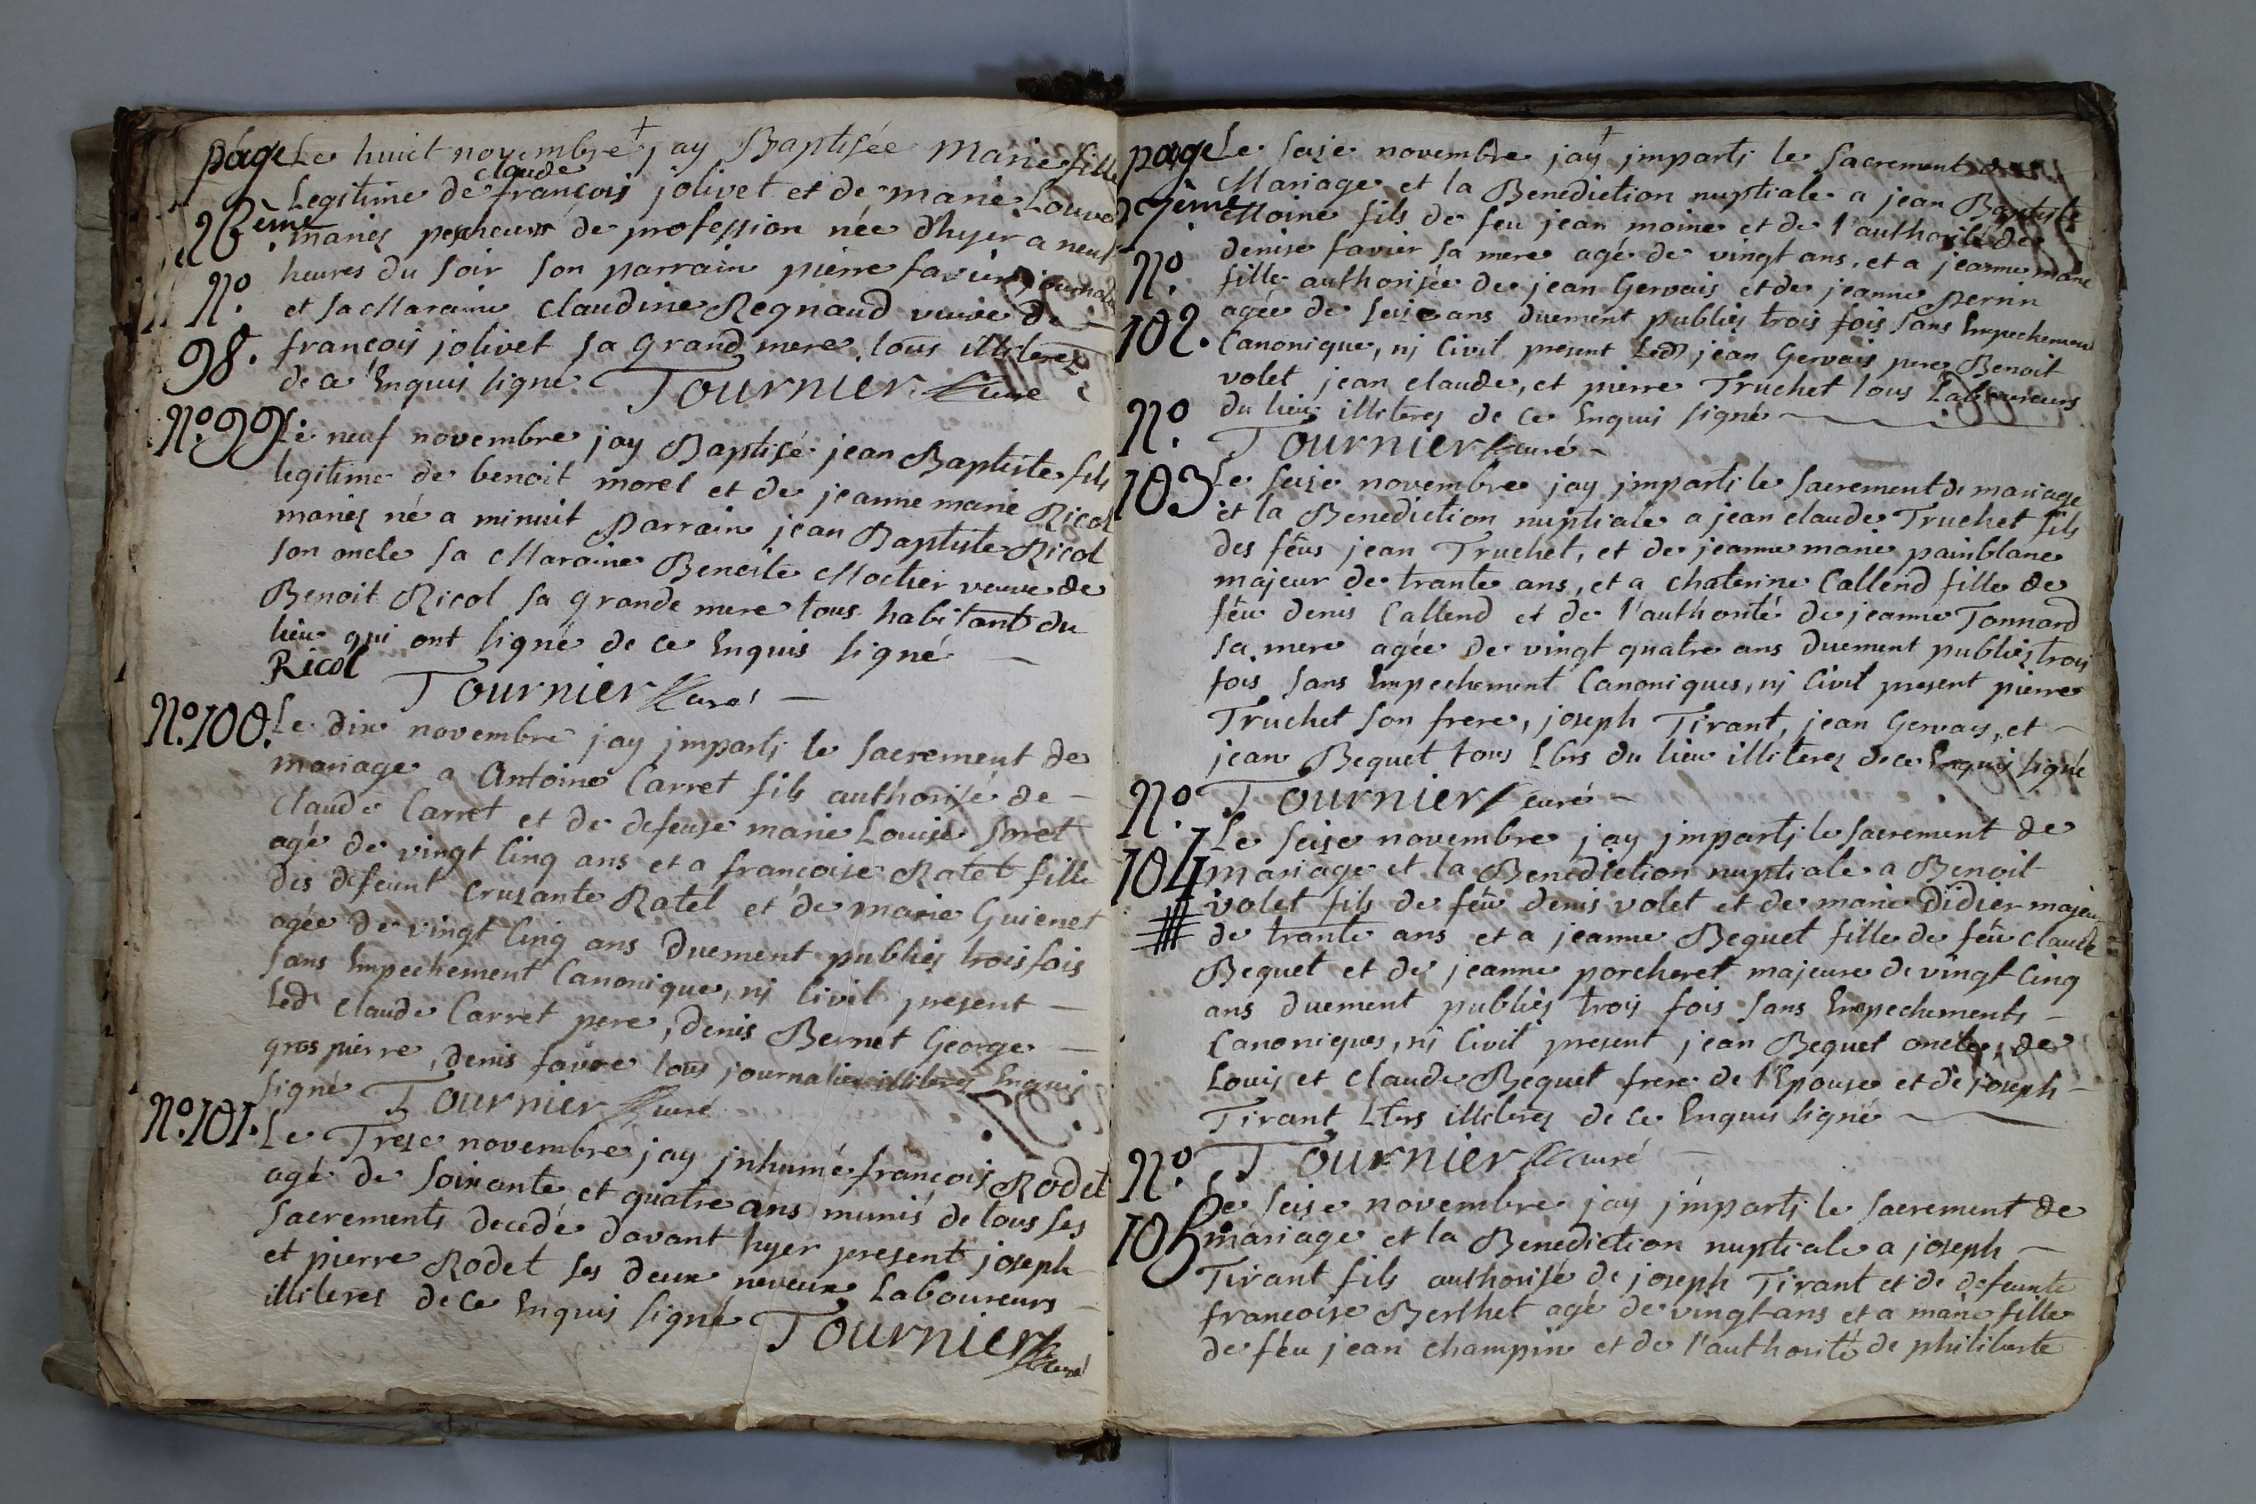 page
Le huict novembre jay Baptisée Marie fille
Legitime de claude françois jolivet et de marie Louvet
26ème
mariés pescheurs de profession née d'hyer a neuf
heures du soir son parrain pierre favier journalier
N°. 98.
et sa Maraine Claudine Regnaud veuve de
françois jolivet sa grand mere tous illiterez
de ce Enquis signé Tournier Curé
N°. 99.
Le neuf novembre jay Baptisé jean Baptiste fils
legitime de benoit morel et de jeanne marie Ricol
mariés né a minuit Parrain jean Baptiste Ricol
son oncle sa Maraine Benoite Moctier veuve de
Benoit Ricol sa grande mere tous habitant du
lieu qui ont signé de ce Enquis signé
Ricol Tournier Curé
N°. 100.
Le dix novembre jay jmparti le sacrement de
mariage a Antoine Carret fils authorisé de
Claude Carret et de defeuse marie Louise
agé de vingt Cinq ans et a francoise Ratet fille
des defeunt Crusante Ratel et de marie Guienet
agée de vingt Cinq ans Duement publiés trois fois
sans Empechement Canonique, nj Civil present
Led Claude Carret pere, Denis Bernet George
gros pierre, Denis favre tous journalier illiterez Enquis
signé Tournier Curé
N°. 101.
Le Treze novembre jay jnhumé françois Rodet
agé de soixante et quatre ans munis de tous ses
sacrements decedé davant hyer present joseph
et pierre Rodet ses deux neveux Laboureurs
illiteres de ce Enquis signé Tournier Curé
page
Le seize novembre jay jmparti le sacrement de
27ème
Mariage et la Benediction nuptiale a jean Baptiste
Moine fils de feu jean moine et de l'authorité de
N°. 102.
denise favier sa mere agé de vingt ans, et a jeanne marie
fille authorisée de jean Gervais et de jeanne Perrin
agée de seize ans duement publiés trois fois sans Empechement
Canonique, nj Civil present Led jean Gervais pere Benoit
volet jean claude, et pierre Truchet tous Laboureurs
du lieu illiterez de ce Enquis signé
Tournier Curé
N°. 103
Le seize novembre jay jmparti le sacrement de mariage
et la Benediction nuptiale a jean claude Truchet fils
des fëus jean Truchet, et de jeanne marie painblanc
majeur de trante ans, et a chaterine Callend fille de
fëu denis Callend et de l'authorité de jeanne Tonnard
sa mere agée de vingt quatre ans Duement publiés trois
fois sans Empechement Canoniques, nj Civil present pierre
Truchet son frere, joseph Tirant, jean Gervais, et
jean Bequet tous Lbrs du lieu illiterez de ce Enquis signé
Tournier curé
N°. 104
Le seize novembre jay jmparti le sacrement de
mariage et la Benediction nuptiale a Benoit
volet fils de fëu denis volet et de marie Didier majeur
de trante ans et a jeanne Bequet fille de fëu claude
Bequet et de jeanne porcheret majeure de vingt Cinq
ans duement publiés trois fois sans Empechements
Canoniques, nj Civil present jean Bequet oncle, de
Louis et claude Bequet frere de l'Epouse et de joseph
Tirant Lbrs illiterez de ce Enquis signé
Tournier Curé
N°. 105
Le seize novembre jay jmparti le sacrement de
mariage et la Benediction nuptiale a joseph
Tirant fils authorisé de joseph Tirant et de defeunte
francoise Berthet agé de vingt ans et a marie fille
de fëu jean champin et de l'authorité de philiberte